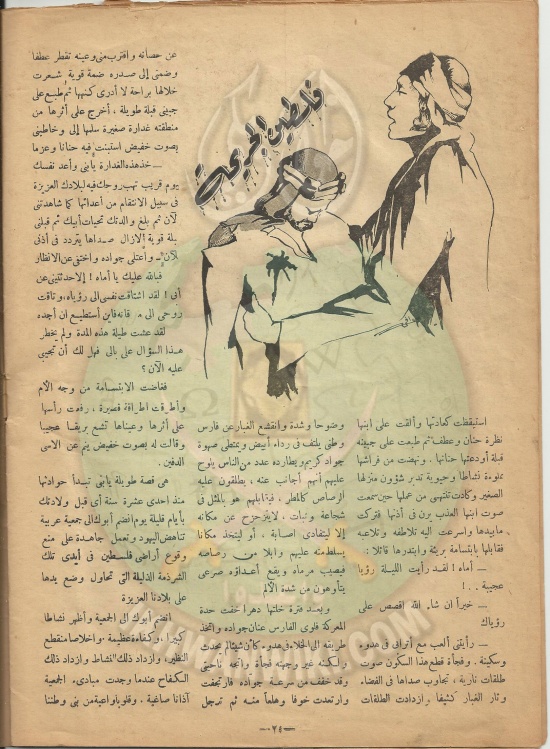 فلسطين الجريحة
استيقظت كعادتها وألقت على ابنها
نظرة حنان وعطف ثم طبعت على جبينه
قبلة أودعتها حنانها . ونهضت من فراشها
مملوءة نشاطا وحيوية تدبر شؤون منزلها
الصغير وكادت تنتهي من عملها حين سمعت
صوت ابنها العذب يرن في أذنها فتركت
ما بيدها واسرعت اليه تلاطفه وتلاعبه
فقابلها بابتسامة بريئة وابتدرها قائلا :
ــ أماه ! لقد رأيت الليلة رؤيا
عجيبة . . !
ــ خيراً ان شاء الله اقصص على
رؤياك
ــ رأيتني ألعب مع أترابى في هدوء
وسكينة . وفجأة قطع هذا السكون صوت
طلقات نارية ، تجاوب صداها في الفضاء
وثار الغبار كثيفا وازدادت الطلقات
وضوحا وشدة وانقشع الغبار عن فارس
وطني يلتف في رداء أبيض ويمتطى صهوة
جواد كريم ويطارده عدد من الناس يلوح
عليهم أنهم أجانب عنه ، يطلقون عليه
الرصاص كالمطر . فيقابلهم هو بالمثل فى
شجاعة وثبات ، لا يتزحزح عن مكانه
إلا ليتفادى اصابة ، أو ليتخذ مكانا
يسلط منه عليهم وابلا من رصاصه
فيصيب مرماه ويقع أعداؤه صرعى
يتأوهون من شدة الألم
وبعد فترة خلتها دهرا خفت حدة
المعركة فلوى الفارس عنان جواده واتخذ
طريقه الى الخلاء في هدوء كأن شيئا لم يحدث
ولكنه غير وجهته فجأة واتجه ناحيتى
وقد خفف من سرعة جواده فارتجفت
وارتعدت خوفا وهلعاً منه ثم ترجل
عن حصانه واقترب منى وعينه تقطر عطفا
وضمنى إلى صدره ضمة قوية شعرت
خلالها براحة لا أدرى كنهها ثم طبع على
جبينى قبلة طويلة ، أخرج على أثرها من
منطقته غدارة صغيرة سلمها إلى وخاطبنى
بصوت خفيض استبنت فيه حنانا وعزما
ــ خذ هذه الغدارة يا بنى وأعد نفسك
ليوم قريب تهب روحك فيه لبلادك العزيزة
في سبيل الانتقام من أعدائها كما شاهدتنى
الآن ثم بلغ والدتك تحيات أبيك ثم قبلنى
قبلة قوية لا يزال صداها يتردد فى أذنى
للآن واعتلى جواده واختفى عن الأنظار
فبالله عليك يا أماه ! إلا حدثتينى عن
أبى ! لقد اشتاقت نفسى الى رؤياه ، وتاقت
روحى الى لقائه فاين أستطيع ان أجده
لقد عشت طيلة هذه المدة ولم يخطر
هذا السؤال على بالى فهل لك أن تجيبى
عليه الآن ؟
فغاضت الابتسامة من وجه الأم
وأطرقت اطراقة قصيرة ، رفعت رأسها
على أثرها وعيناها تشع بريقا عجيبا
وقالت له بصوت خفيض ينم عن الاسى
الدفين .
هى قصة طويلة يا بنى تبدأ حوادثها
منذ احدى عشرة سنة أى قبل ولادتك
بأيام قليلة يوم انضم أبوك الى جمعية عربية
تناهض اليهود وتعمل جاهدة على منع
وقوع أراضى فلسطين فى أيدى تلك
الشرذمة الذليلة التى تحاول وضع يدها
على بلادنا العزيزة
انضم أبوك الى الجمعية وأظهر نشاطا
كبيرا ، وكفاءة عظيمة . واخلاصا منقطع
النظير ، وازداد ذلك النشاط وازداد ذلك
الكفاح عندما وجدت مبادىء الجمعية
آذانا صاغية . وقلوبا واعية من بنى وطننا
ــ ٢٤ ــ